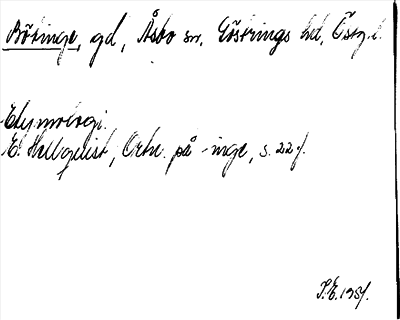 Böringe, gd, Åsbo sn, Göstrings hd, Östg.l.
Etymologi.
E. Hellquist, Ortn. på -inge, s. 22 f.